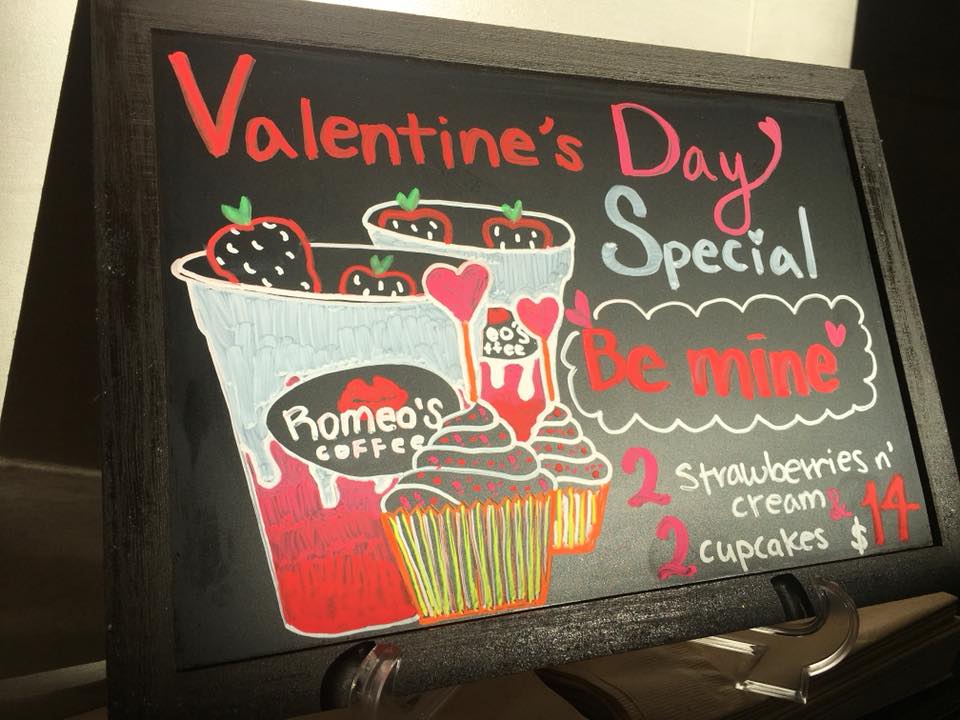 Valentine's Day
Special
Be mine
Romeo's
COFFEE
eo's
ffee
2 strawberries n'
cream &
2 cupcakes $14